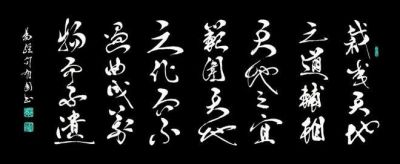 裁成天地
之道輔相
天地之宜
範圍天地
之化而不
過曲成萬
物而不遺
易經句